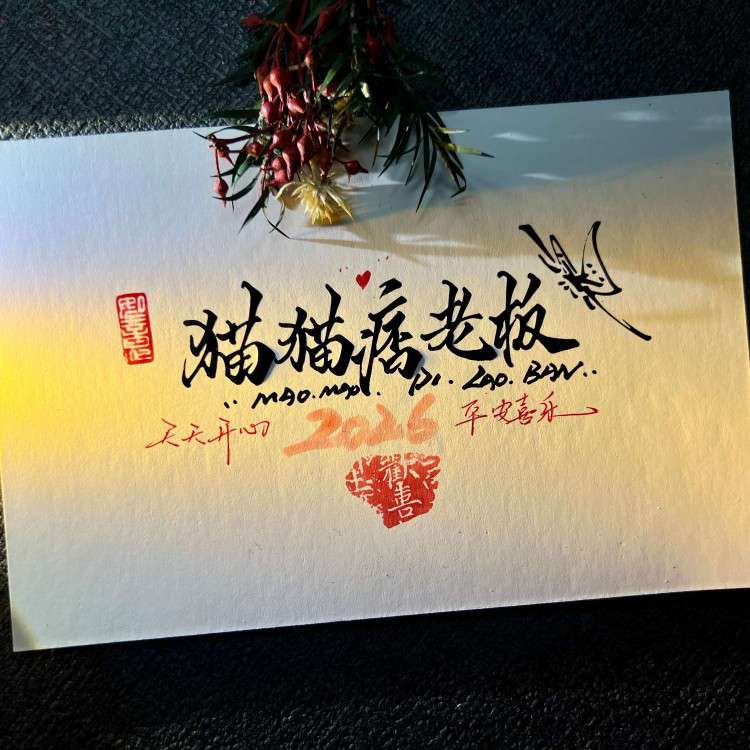 猫猫痞老板
MAO.MAO. PI. LAO. BAN..
天天开心 2026 平安喜乐
歡喜